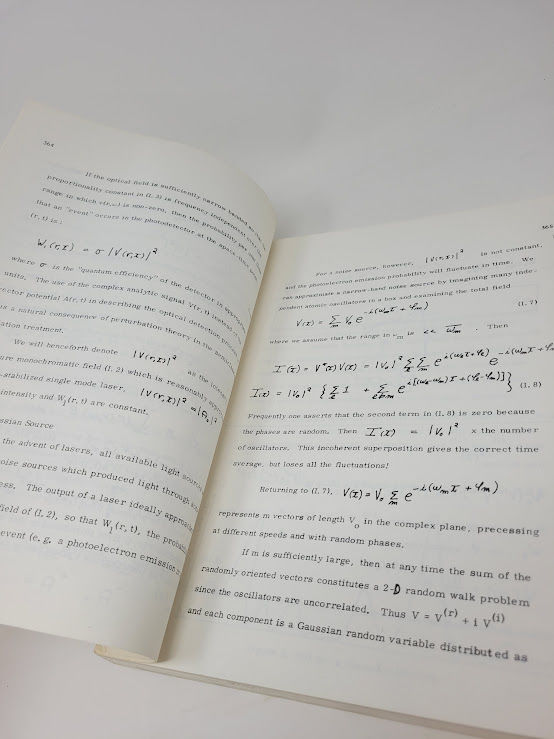 364
If the optical field is sufficiently narrow banded so
proportionality constant in (I. 3) is frequency independent
range in which v(r,∞) is non-zero, then the probability per
that an "event" occurs in the photodetector at the space
(r, t) is:
W₁(r,t) = σ |V(r,t)|²
where σ is the "quantum efficiency" of the detector in
units. The use of the complex analytic signal V(r, t) instead of
vector potential A(r, t) in describing the optical detection
is a natural consequence of perturbation theory in the
ation treatment.
We will henceforth denote |V(r,t)|² as the
ure monochromatic field (I. 2) which is reasonably
-stabilized single mode laser, |V(r,t)|² = |A₀|²
intensity and W₁(r, t) are constant.
ssian Source
the advent of lasers, all available light
oise sources which produced light through
ess. The output of a laser ideally
field of (I. 2), so that W₁(r, t), the
event (e. g. a photoelectron emission
365
For a noise source, however, |V(r,t)|² is not constant,
and the photoelectron emission probability will fluctuate in time. We
can approximate a narrow-band noise source by imagining many inde-
pendent atomic oscillators in a box and examining the total field
V(t) = Σₘ V₀ e^{-i(ωₘt + φₘ)} (I. 7)
where we assume that the range in νₘ is << ω̄ₘ. Then
I(t) = V*(t)V(t) = |V₀|² Σ_ℓ Σₘ e^{i(ω_ℓt+φ_ℓ)} e^{-i(ωₘt+φₘ)}
I(t) = |V₀|² { Σ_ℓ 1 + Σ_{ℓ≠m} e^{i[(ω_ℓ-ωₘ)t+(φ_ℓ-φₘ)]} } (I. 8)
Frequently one asserts that the second term in (I. 8) is zero because
the phases are random. Then I(t) = |V₀|² x the number
of oscillators. This incoherent superposition gives the correct time
average, but loses all the fluctuations!
Returning to (I. 7), V(t) = V₀ Σₘ e^{-i(ωₘt + φₘ)}
represents m vectors of length V₀ in the complex plane, precessing
at different speeds and with random phases.
If m is sufficiently large, then at any time the sum of the
randomly oriented vectors constitutes a 2-D random walk problem
since the oscillators are uncorrelated. Thus V = V^(r) + i V^(i)
and each component is a Gaussian random variable distributed as